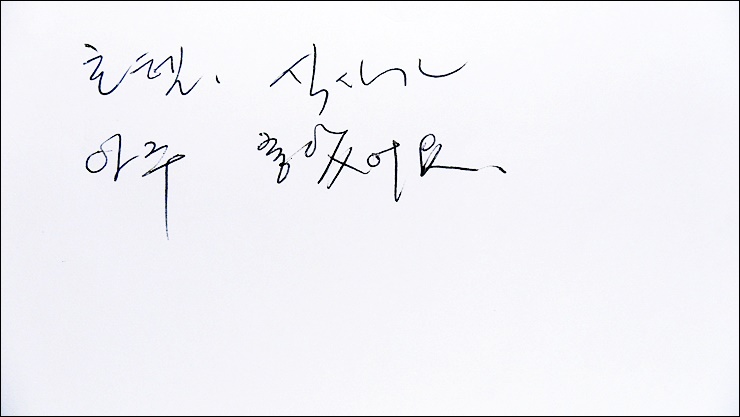 호텔. 식사는
아주 좋았어요.